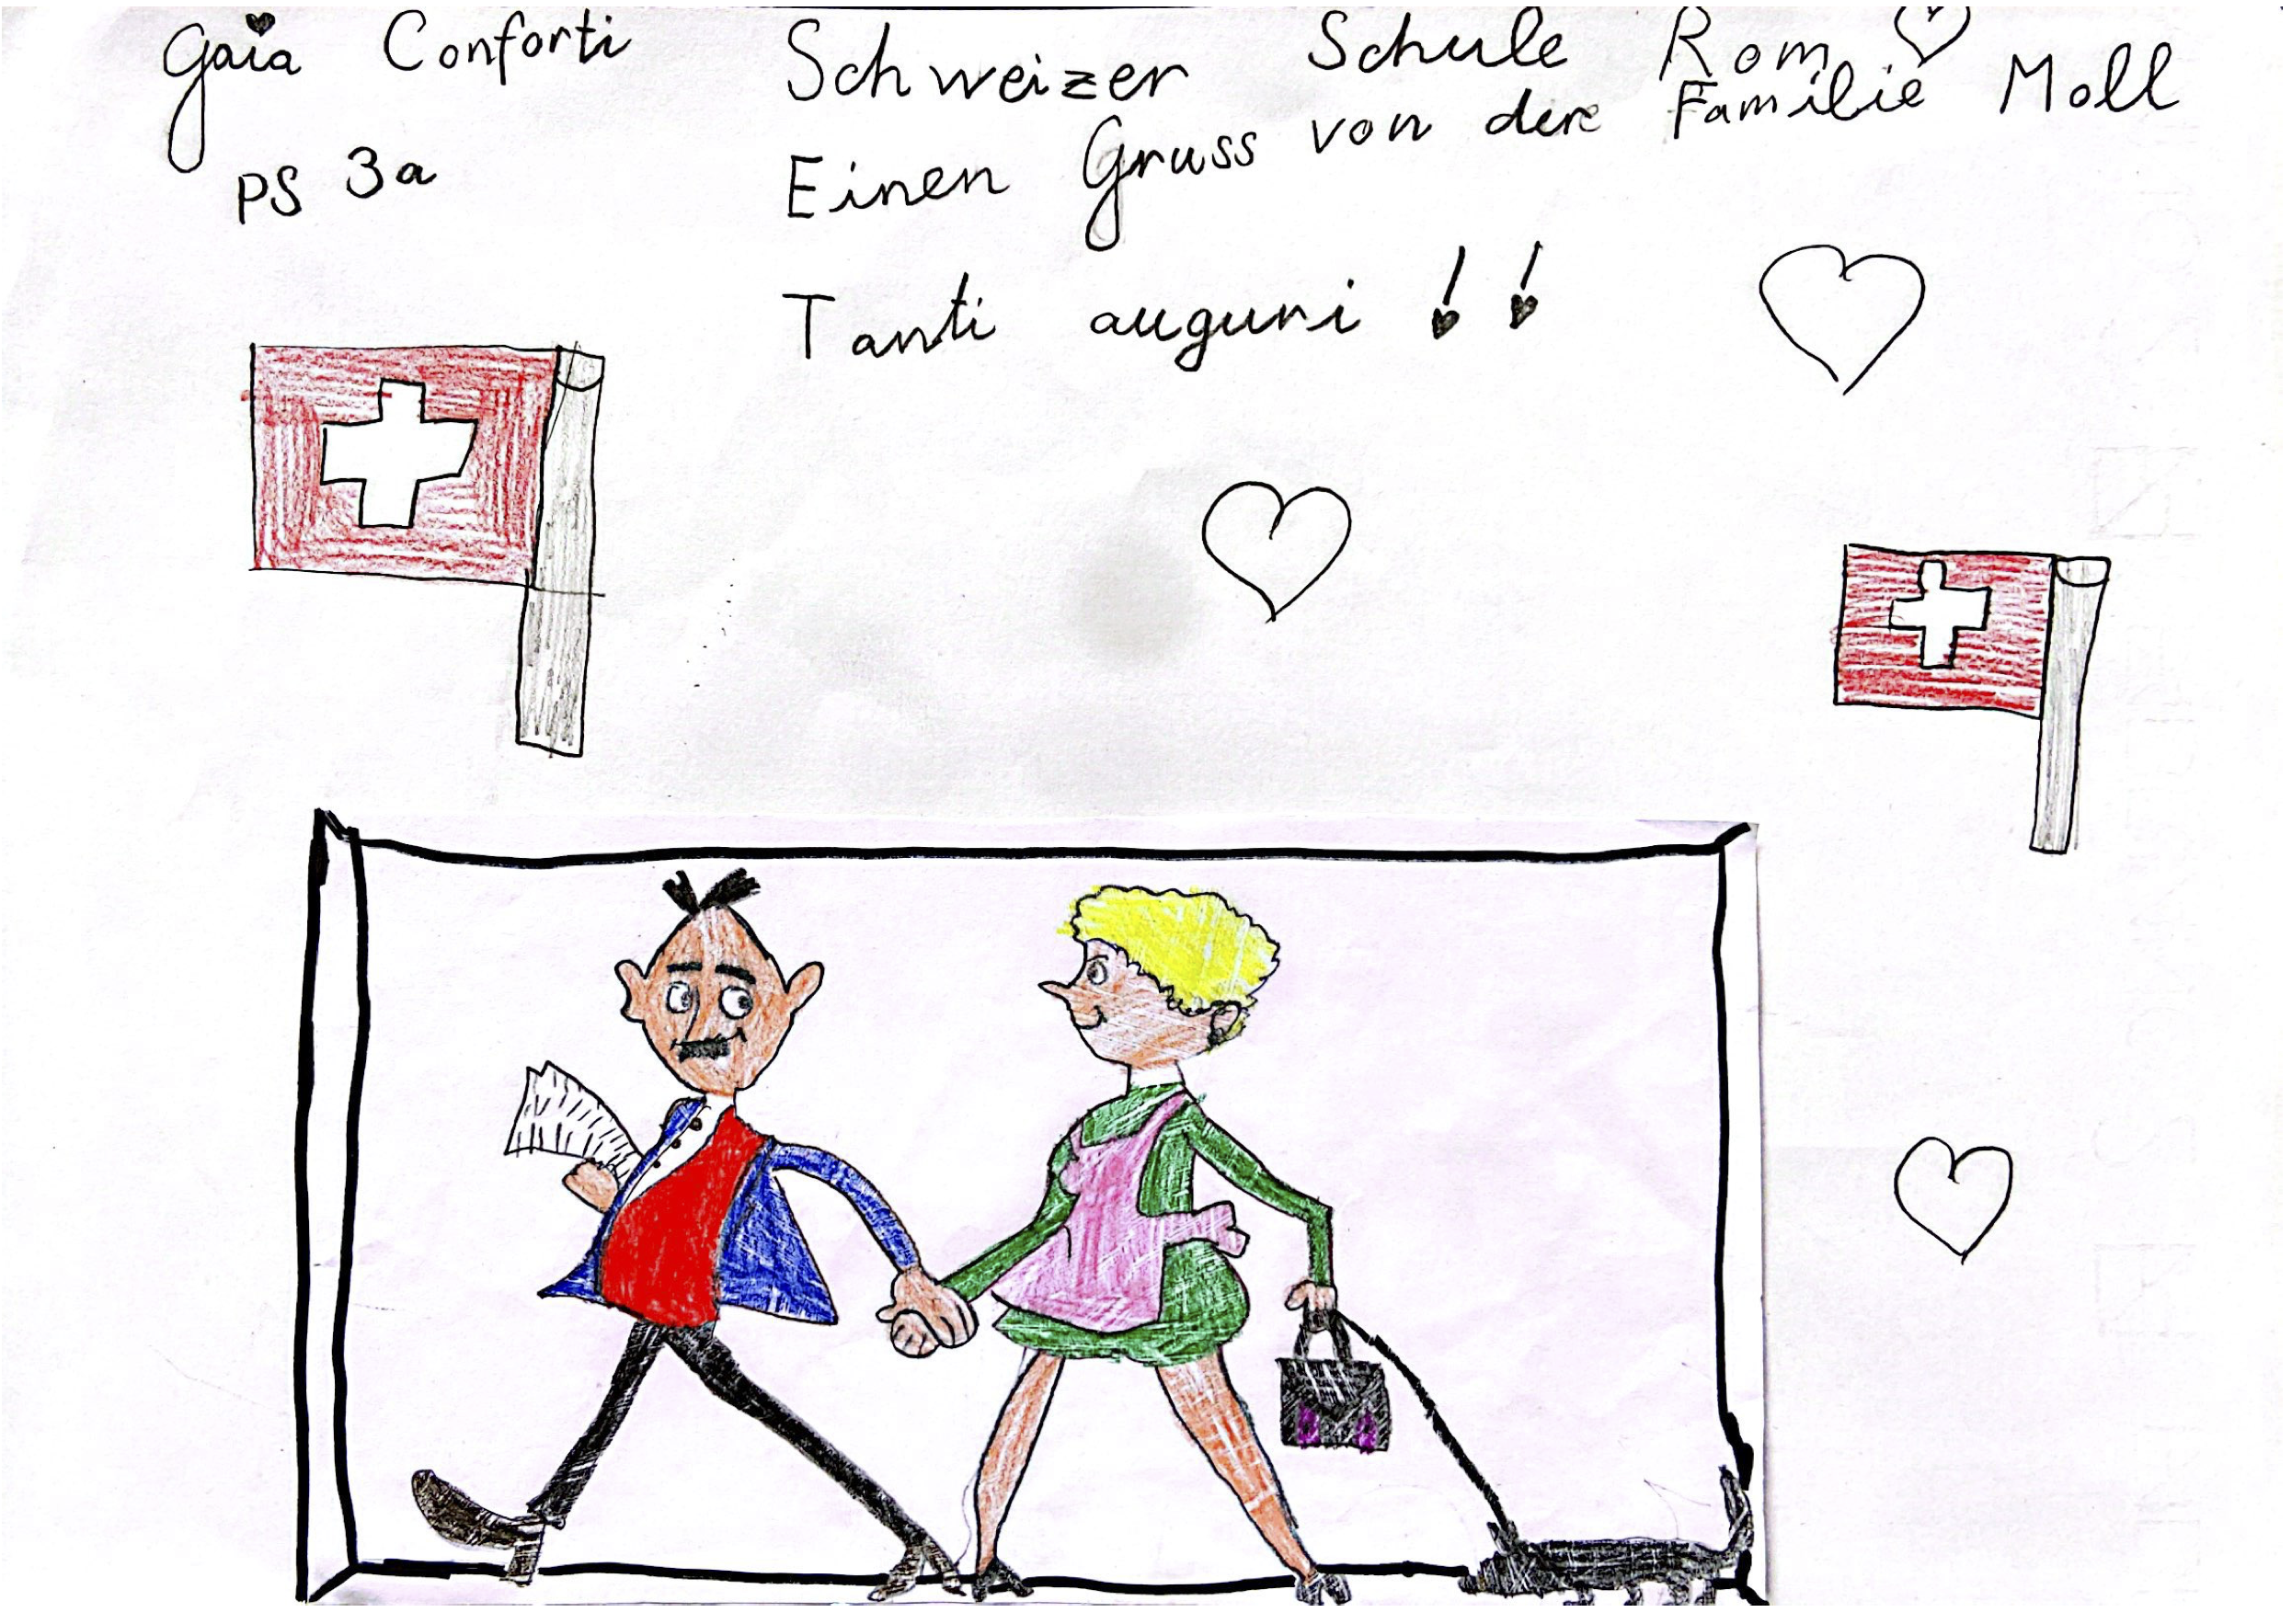 Gaia Conforti
PS 3a
Schweizer Schule Rom
Einen Gruss von der Familie Moll
Tanti auguri !!